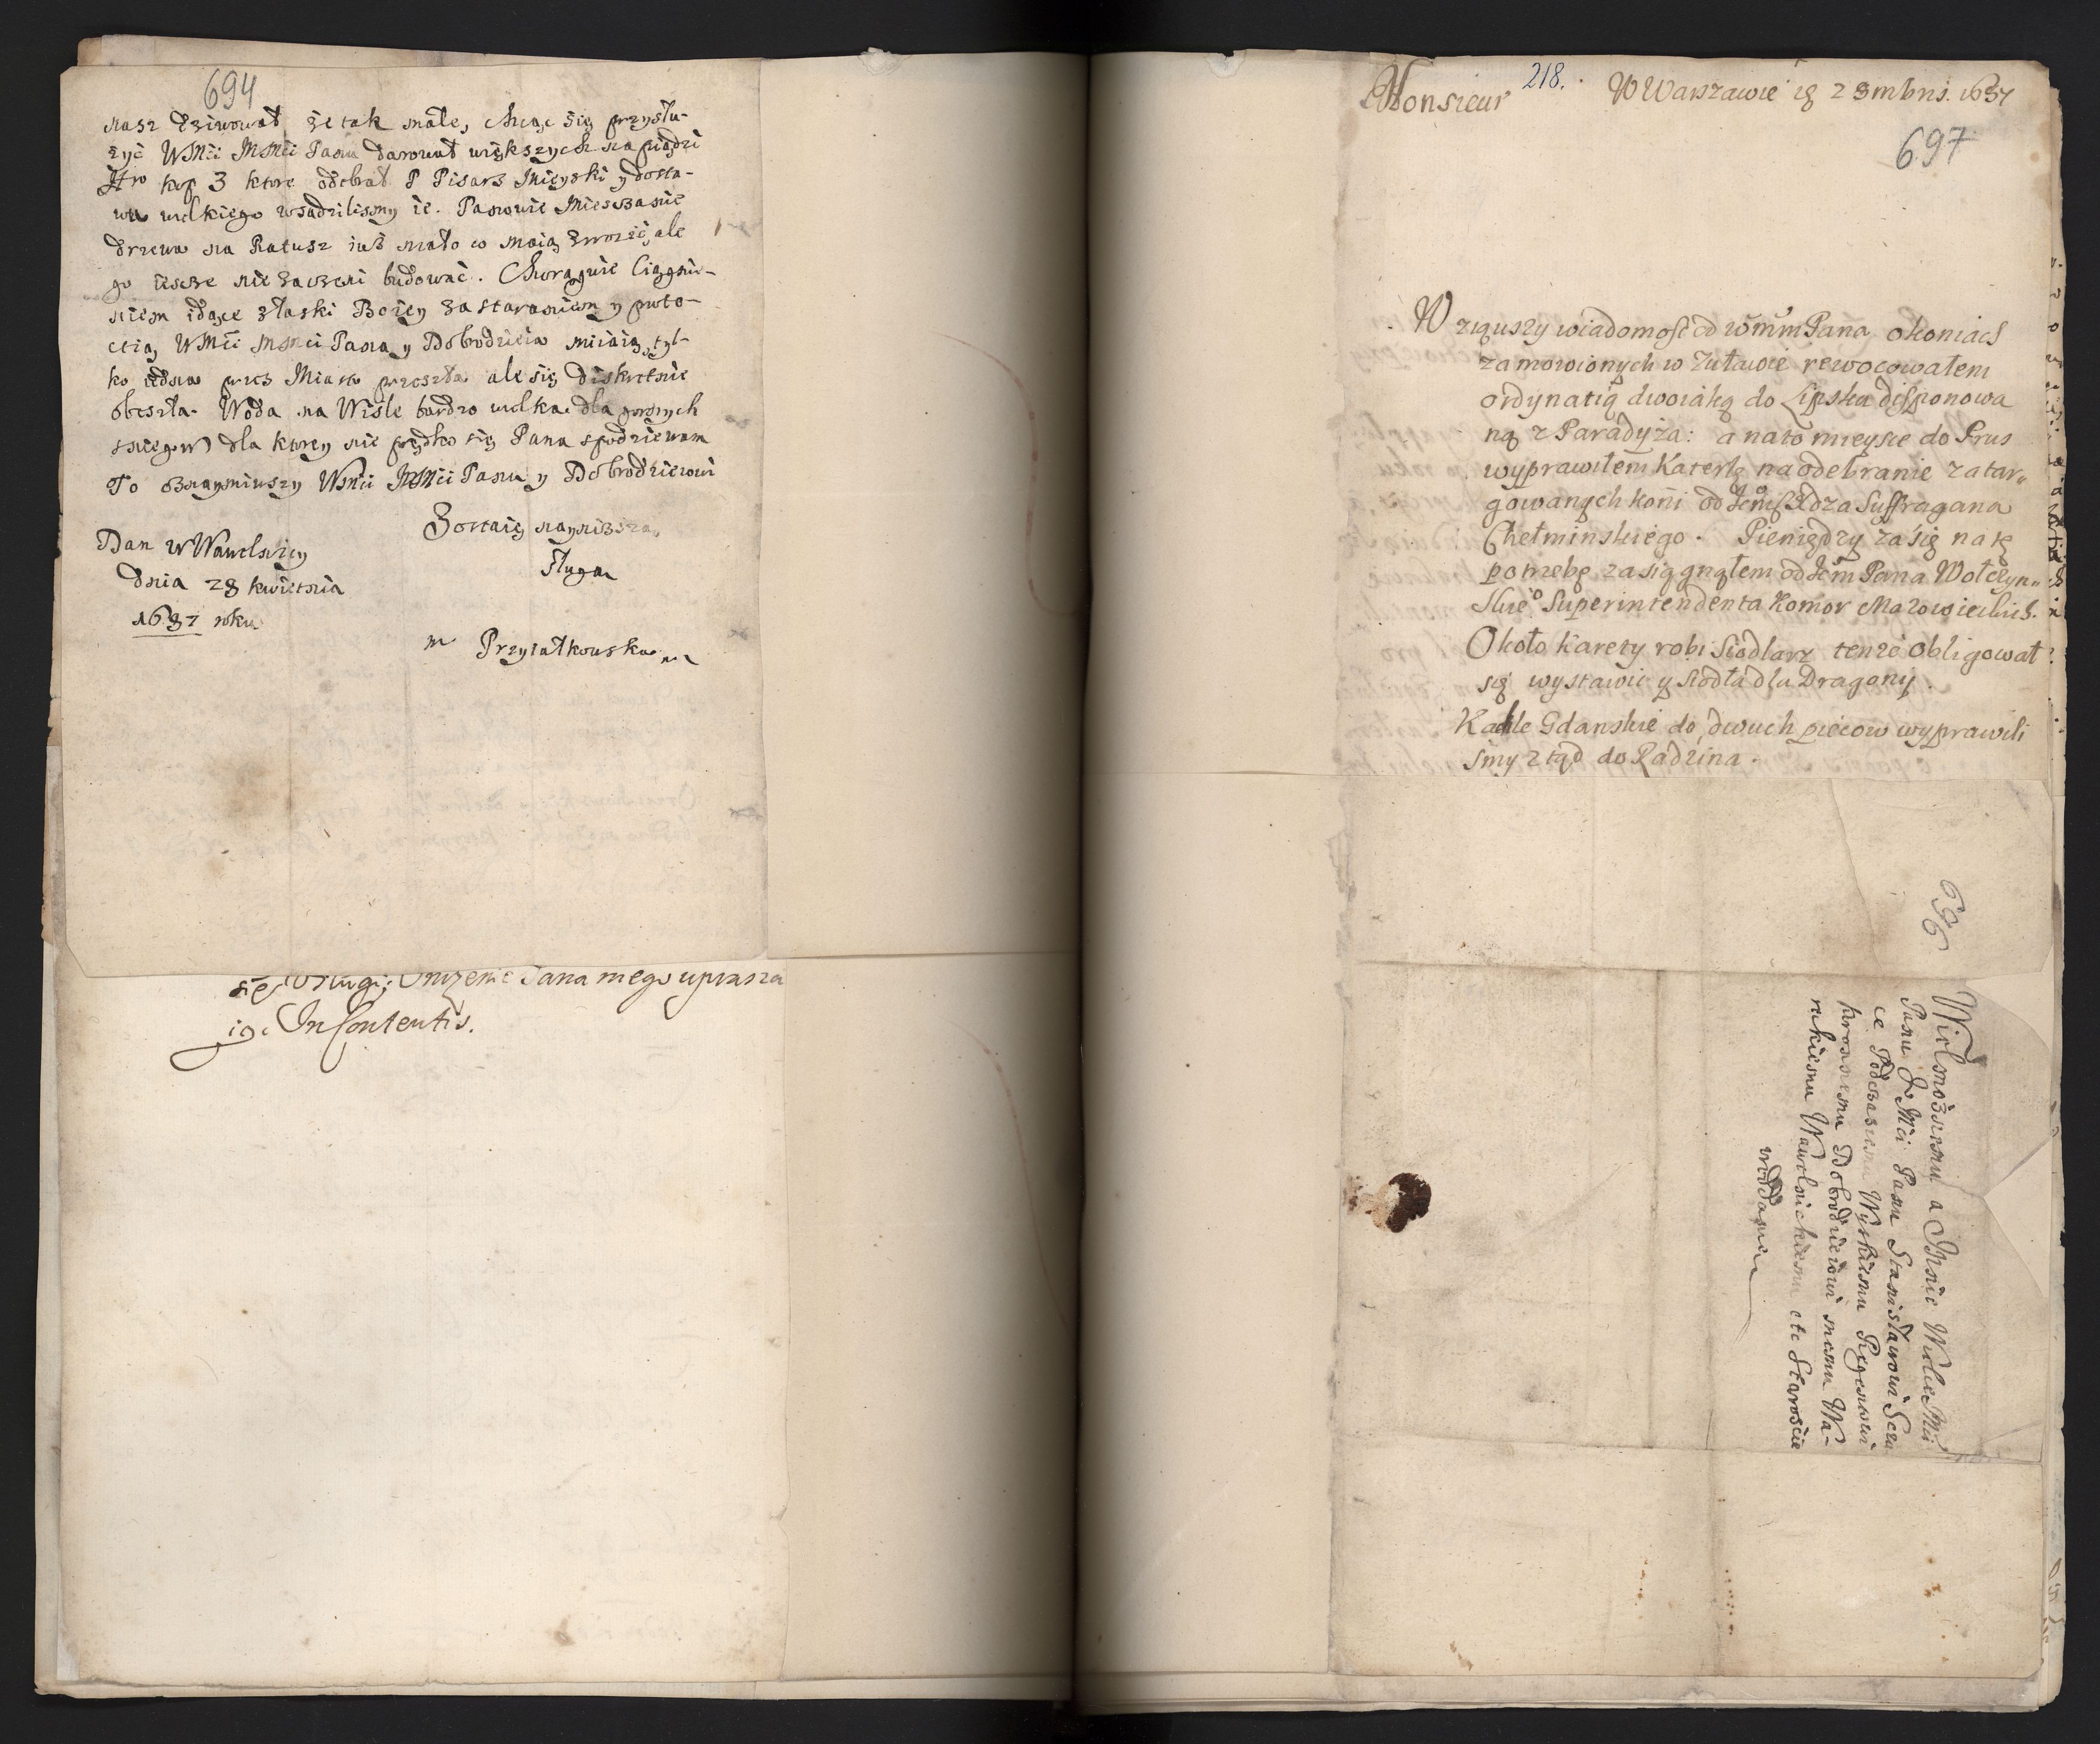 694
nasz dziwował że tak małe, chcąc się przysłu-
żyć WMći MMći Panu darował większych na piądzi
kop 3 ktore odebrał P Pisarz Mieyski y dosta-
wu wielkiego wsadzilismy ie. Panowie Mieszczanie
drzewa na Ratusz iuż mało co maią zwozić, ale
go iescze nie zaczeni budować. Chorągwie Ciągnie-
niem idące złaski Bożey za staraniem y prote-
ctią WMći MMći Pana y Dobrodzieia miiaią, tyl-
ko iedna przez Miasto przeszła ale się diskretnie
obeszła. Woda na Wiśle bardzo wielka dla
sniegow dla ktorey nie prędko się Pana spodziewam
To oznaymiwszy WMći MMći Panu y Dobrodzieiowi
Zostaię nayniszszą
Sługą
Dan w Wawelnicy
dnia 28 kwietnia
1687 roku
Przyiałkowska
się Usługi; Uniżenie Pana mego uprasza
ią. In Contentis.
Monsieur
218.
W Warszawie ią 2 8mbris. 1687
697
Wziąuszy wiadomość od WmmPana o koniach
zamowionych w Żuławie rewocowałem
ordynatią dwoiaką do Lipska disponowa
ną z Paradyża: a nato mieysce do Prus
wyprawiłem Katerlę na odebranie zatar„
gowanych koni od Jem Xdza Suffragana
Chełminskiego. Pieniędzy zasię na tę
potrzebę zasiągnąłem od Jem Pana Wołczyn„
skieo Superintendenta Komor Mazowieckich.
Około karety robi Siodlarz tenże obligował
się wystawić y siodła dla Dragony.
Kachle Gdanskie do dwuch piecow wyprawili
smy ztąd do Radzina.
696
Wielmożnemu a Mnie Wielce Mći
Panu Jo Mći Panu Stanisławowi Sczu
ce Podczaszemu Wyskiemu Regentowi
koronnemu Dobrodzieiowi memu Wa-
reckiemu Wawelnickiemu etc Staroście
woddanie